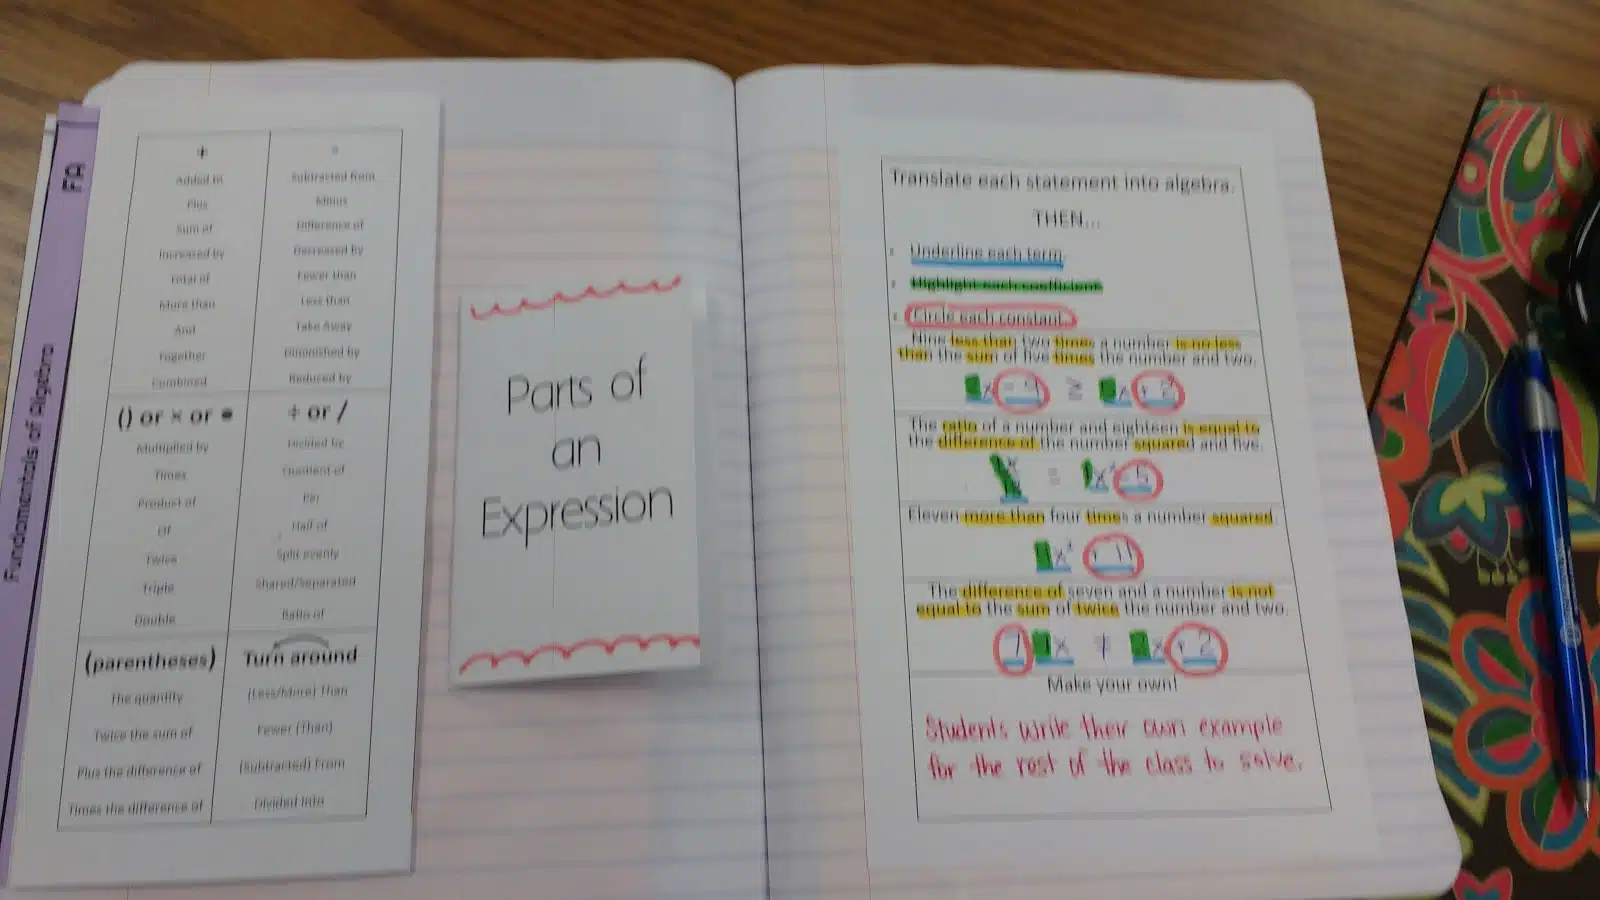 FA
Fundamentals of Algebra
+
Added to
Plus
Sum of
Increased by
Total of
More than
And
Together
Combined
-
Subtracted from
Minus
Difference of
Decreased by
Fewer than
Less than
Take Away
Diminished by
Reduced by
() or × or •
Multiplied by
Times
Product of
Of
Twice
Triple
Double
÷ or /
Divided by
Quotient of
Per
Half of
Split evenly
Shared/Separated
Ratio of
(parentheses)
The quantity
Twice the sum of
Plus the difference of
Times the difference of
Turn around
(Less/More) Than
Fewer (Than)
(Subtracted) From
Divided Into
Parts of
an
Expression
Translate each statement into algebra.
THEN...
Underline each term.
Highlight each coefficient.
Circle each constant.
Nine less than two times a number is no less
than the sum of five times the number and two.
x - 9 ≥ x + 2
The ratio of a number and eighteen is equal to
the difference of the number squared and five.
x = x² - 5
Eleven more than four times a number squared.
x² + 11
The difference of seven and a number is not
equal to the sum of twice the number and two.
7 x ≠ x + 2
Make your own!
Students write their own example
for the rest of the class to solve.